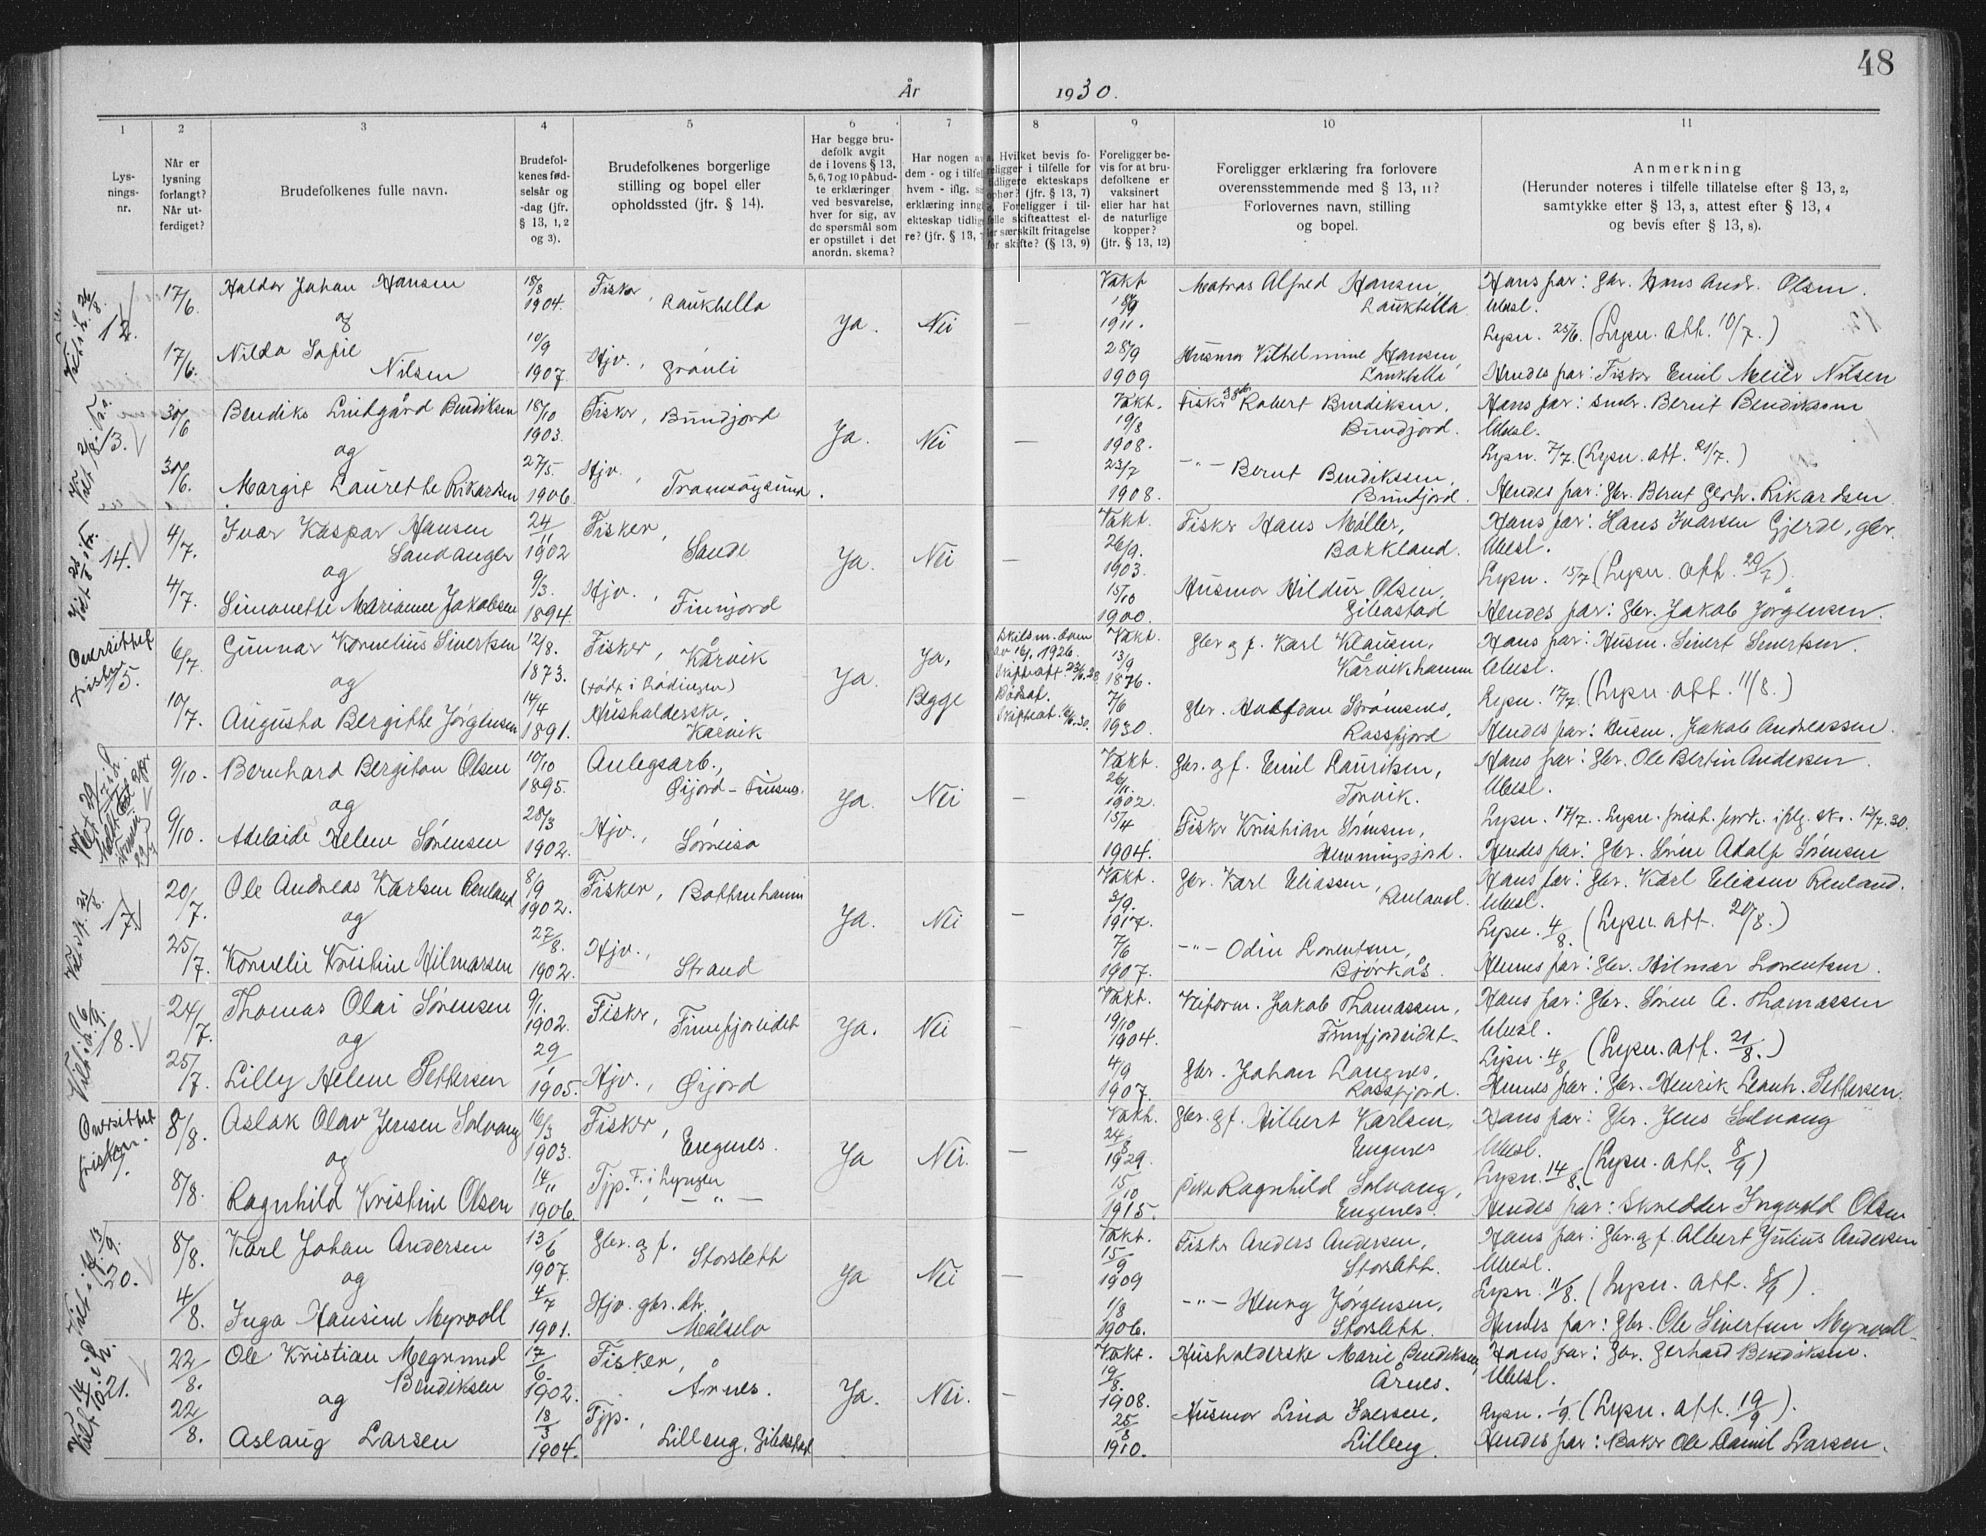 48
År 1930.
1 2 3 4 5 6 7 8 9 10 11
Lysningsnr.
Når er lysning forlangt? Når utferdiget?
Brudefolkenes fulle navn.
Brudefolkenes fødselsår og -dag (jfr. § 13, 1, 2 og 3).
Brudefolkenes borgerlige stilling og bopel eller opholdssted (jfr. § 14).
Har begge brudefolk avgit de i lovens § 13, 5, 6, 7 og 10 påbudte erklæringer ved besvarelse, hver for sig, av de spørsmål som er opstillet i det anordn. skema?
Har nogen av dem - og i tilfelle hvem - iflg. erklæring inngått ekteskap tidligere? (jfr. § 13,
Hvilket bevis foreligger i tilfelle for tidligere ekteskaps ophør? (jfr. § 13, 7) Foreligger i tilfelle skifteattest eller særskilt fritagelse for skifte? (§ 13, 9)
Foreligger bevis for at brudefolkene er vaksinert eller har hat de naturlige kopper? (jfr. § 13, 12)
Foreligger erklæring fra forlovere overensstemmende med § 13, 11? Forlovernes navn, stilling og bopel.
Anmerkning (Herunder noteres i tilfelle tillatelse efter § 13, 2, samtykke efter § 13, 3, attest efter § 13, 4 og bevis efter § 13, 8).
12.
17/6. Haldor Johan Hansen 18/8 1904. Fisker, Laukhella
og
17/6. Nilda Sofie Nilsen 10/9 1907. Hjv., Grønli
Ja. Nei —
Vakt 18/9 1911. 28/9 1909
Matros Alfred Hansen, Laukhella
Husmor Vilhelmine Hansen, Laukhella
Hans far: Gbr. Hans Andr. Olsen.
Ubesl.
Lysn. 25/6. (Lysn. att. 10/7.)
Hendes far: Fisker Emil Meier Nilsen
13.
30/6 Bendiks Lindgård Bendiksen 18/10 1903. Fisker, Bundjord
og
30/6. Margit Laurette Rikardsen 27/5. 1906. Hjv., Tromsøysund.
Ja. Nei —
Vakt. 19/8 1908. 23/7 1908.
Fisker Robert Bendiksen, Bundjord.
-"- Bernt Bendikssen, Bundjord.
Hans far: Småbr. Bernt Bendiksen
Ubesl.
Lysn. 7/7 (Lysn. att. 21/7.)
Hendes far: Gbr. Bernt Gerh. Rikardsen
14.
4/7. Ivar Kaspar Hansen Sandanger 24/11 1902 Fisker, Sande
og
4/7. Simonette Marianne Jakobsen 9/3. 1894. Hjv., Finnjord
Ja. Nei —
Vakt. 26/9. 1903. 15/10 1900.
Fisker Hans Møller, Bakkland.
Husmor Hildur Olsen, Gibostad
Hans far: Hans Ivarsen Gjerde, gbr.
Ubesl.
Lysn. 15/7 (Lysn. att. 29/7).
Hendes far: Gbr. Jakob Jørgensen.
Oversittet fristen
15.
6/7 Gunnar Kornelius Sivertsen 12/8. 1873. Fisker, Kårvik
og (født i Lødingen)
10/7. Augusta Bergitte Jørgensen 14/4 1891. Husholderske, Kårvik
Ja. Ja, Begge
Skilsm. dom av 16/1 1926.
Skifteatt. 23/6.28
Dødsat.
Vakt. 13/9 1876 7/6 1930.
Gbr. og f. Karl Klausen, Kårvikhamn
Gbr. Halfdan Strømsnes, Rossfjord
Hans far: Husm. Sivert Sivertsen.
Ubesl.
Lysn. 17/7. (Lysn. att. 11/8.)
Hendes far: Husm. Jakob Andreassen
9/10. Bernhard Bergiton Olsen 10/10 1895. Anlegsarb., Øijord - Finsnes.
og
9/10. Adelaide Helene Sørensen 28/3 1902. Hjv., Sørreisa
Ja. Nei —
Vakt. 26/11. 1902. 15/4 1904.
Gbr. og f. Emil Lauriksen, Torvik.
Fisker Kristian Sørensen, Hemmingsfjord.
Hans far: Gbr. Ole Bertin Andersen.
Ubesl.
Lysn. 17/7. Lysn. frist. fork. iflg. sk. 12/7.30.
Hendes far: Gbr. Søren Adolf Sørensen
17
20/7. Ole Andreas Karlsen Renland 8/9 1902. Fisker, Bottenhamn
og
25/7. Kornelie Kristine Hilmarsen 27/8. 1902. Hjv., Strand
Ja. Nei —
Vakt. 3/9. 1917. 7/6 1907.
Gbr. Karl Eliassen, Renland.
-"- Odin Lorentsen, Bjørkås.
Hans far: Gbr. Karl Eliasen Renland.
Ubesl.
Lysn. 4/8. (Lysn. att. 20/8.)
Hennes far: Gbr. Hilmar Lorentsen.
18.
24/7. Thomas Olai Sørensen 9/1. 1902. Fisker, Finnfjordeidet
og
25/7. Lilly Helene Pettersen 29/1 1905. Hjv., Øijord
Ja. Nei —
Vakt. 19/10 1904. 4/9 1907.
Reform. Jakob Thomassen, Finnfjordeidet
Gbr. Johan Langnes, Rossfjord.
Hans far: Gbr. Søren A. Thomassen
Ubesl.
Lysn. 4/8 (Lysn. att. 21/8.)
Hennes far: Gbr. Henrik Leonh. Pettersen.
Oversittet fristen.
8/8. Aslak Olav Jensen Solvang 16/3 1903. Fisker, Engenes.
og
8/8. Ragnhild Kristine Olsen 14/11 1906. Tjp. F. i Lyngen -"-
Ja Nei. —
Vakt. 24/8 1929. 15/10 1915.
Gbr. og f. Hilbert Karlsen, Engenes
Pike Ragnhild Solvang, Engenes.
Hans far: Gbr. Jens Solvang
Ubesl.
Lysn. 14/8. (Lysn. att. 8/9)
Hendes far: Skredder Ingvald Olsen
20.
8/8. Karl Johan Andersen 13/6 1907. Gbr. og f. Storslett
og
4/8. Inga Hansine Myrvoll 4/7 1901. Hjv. gbr. dtr. Målselv
Ja Nei —
Vakt. 15/9 1909 1/8 1906.
Fisker Anders Andersen, Storslett.
-"- Henry Jørgensen, Storslett.
Hans far: Gbr. og f. Albert Julius Andersen
Ubesl.
Lysn. 11/8. (Lysn. att. 8/9).
Hendes far: Gbr. Ole Sivertsen Myrvoll
21.
22/8. Ole Kristian Megrund Bendiksen 17/6. 1902. Fisker, Årnes.
og
22/8. Aslaug Larsen 18/3 1904. Tjp., Lilleng, Gibostad
Ja. Nei. —
Vakt. 19/8. 1908. 25/8 1910.
Husholderske Marie Bendiksen, Årnes.
Husmor Lina Iversen, Lilleng.
Hans far: Gbr. Gerhard Bendiksen.
Ubesl.
Lysn. 1/9. (Lysn. att. 19/9).
Hendes far: Baker Ole Daniel Larsen.